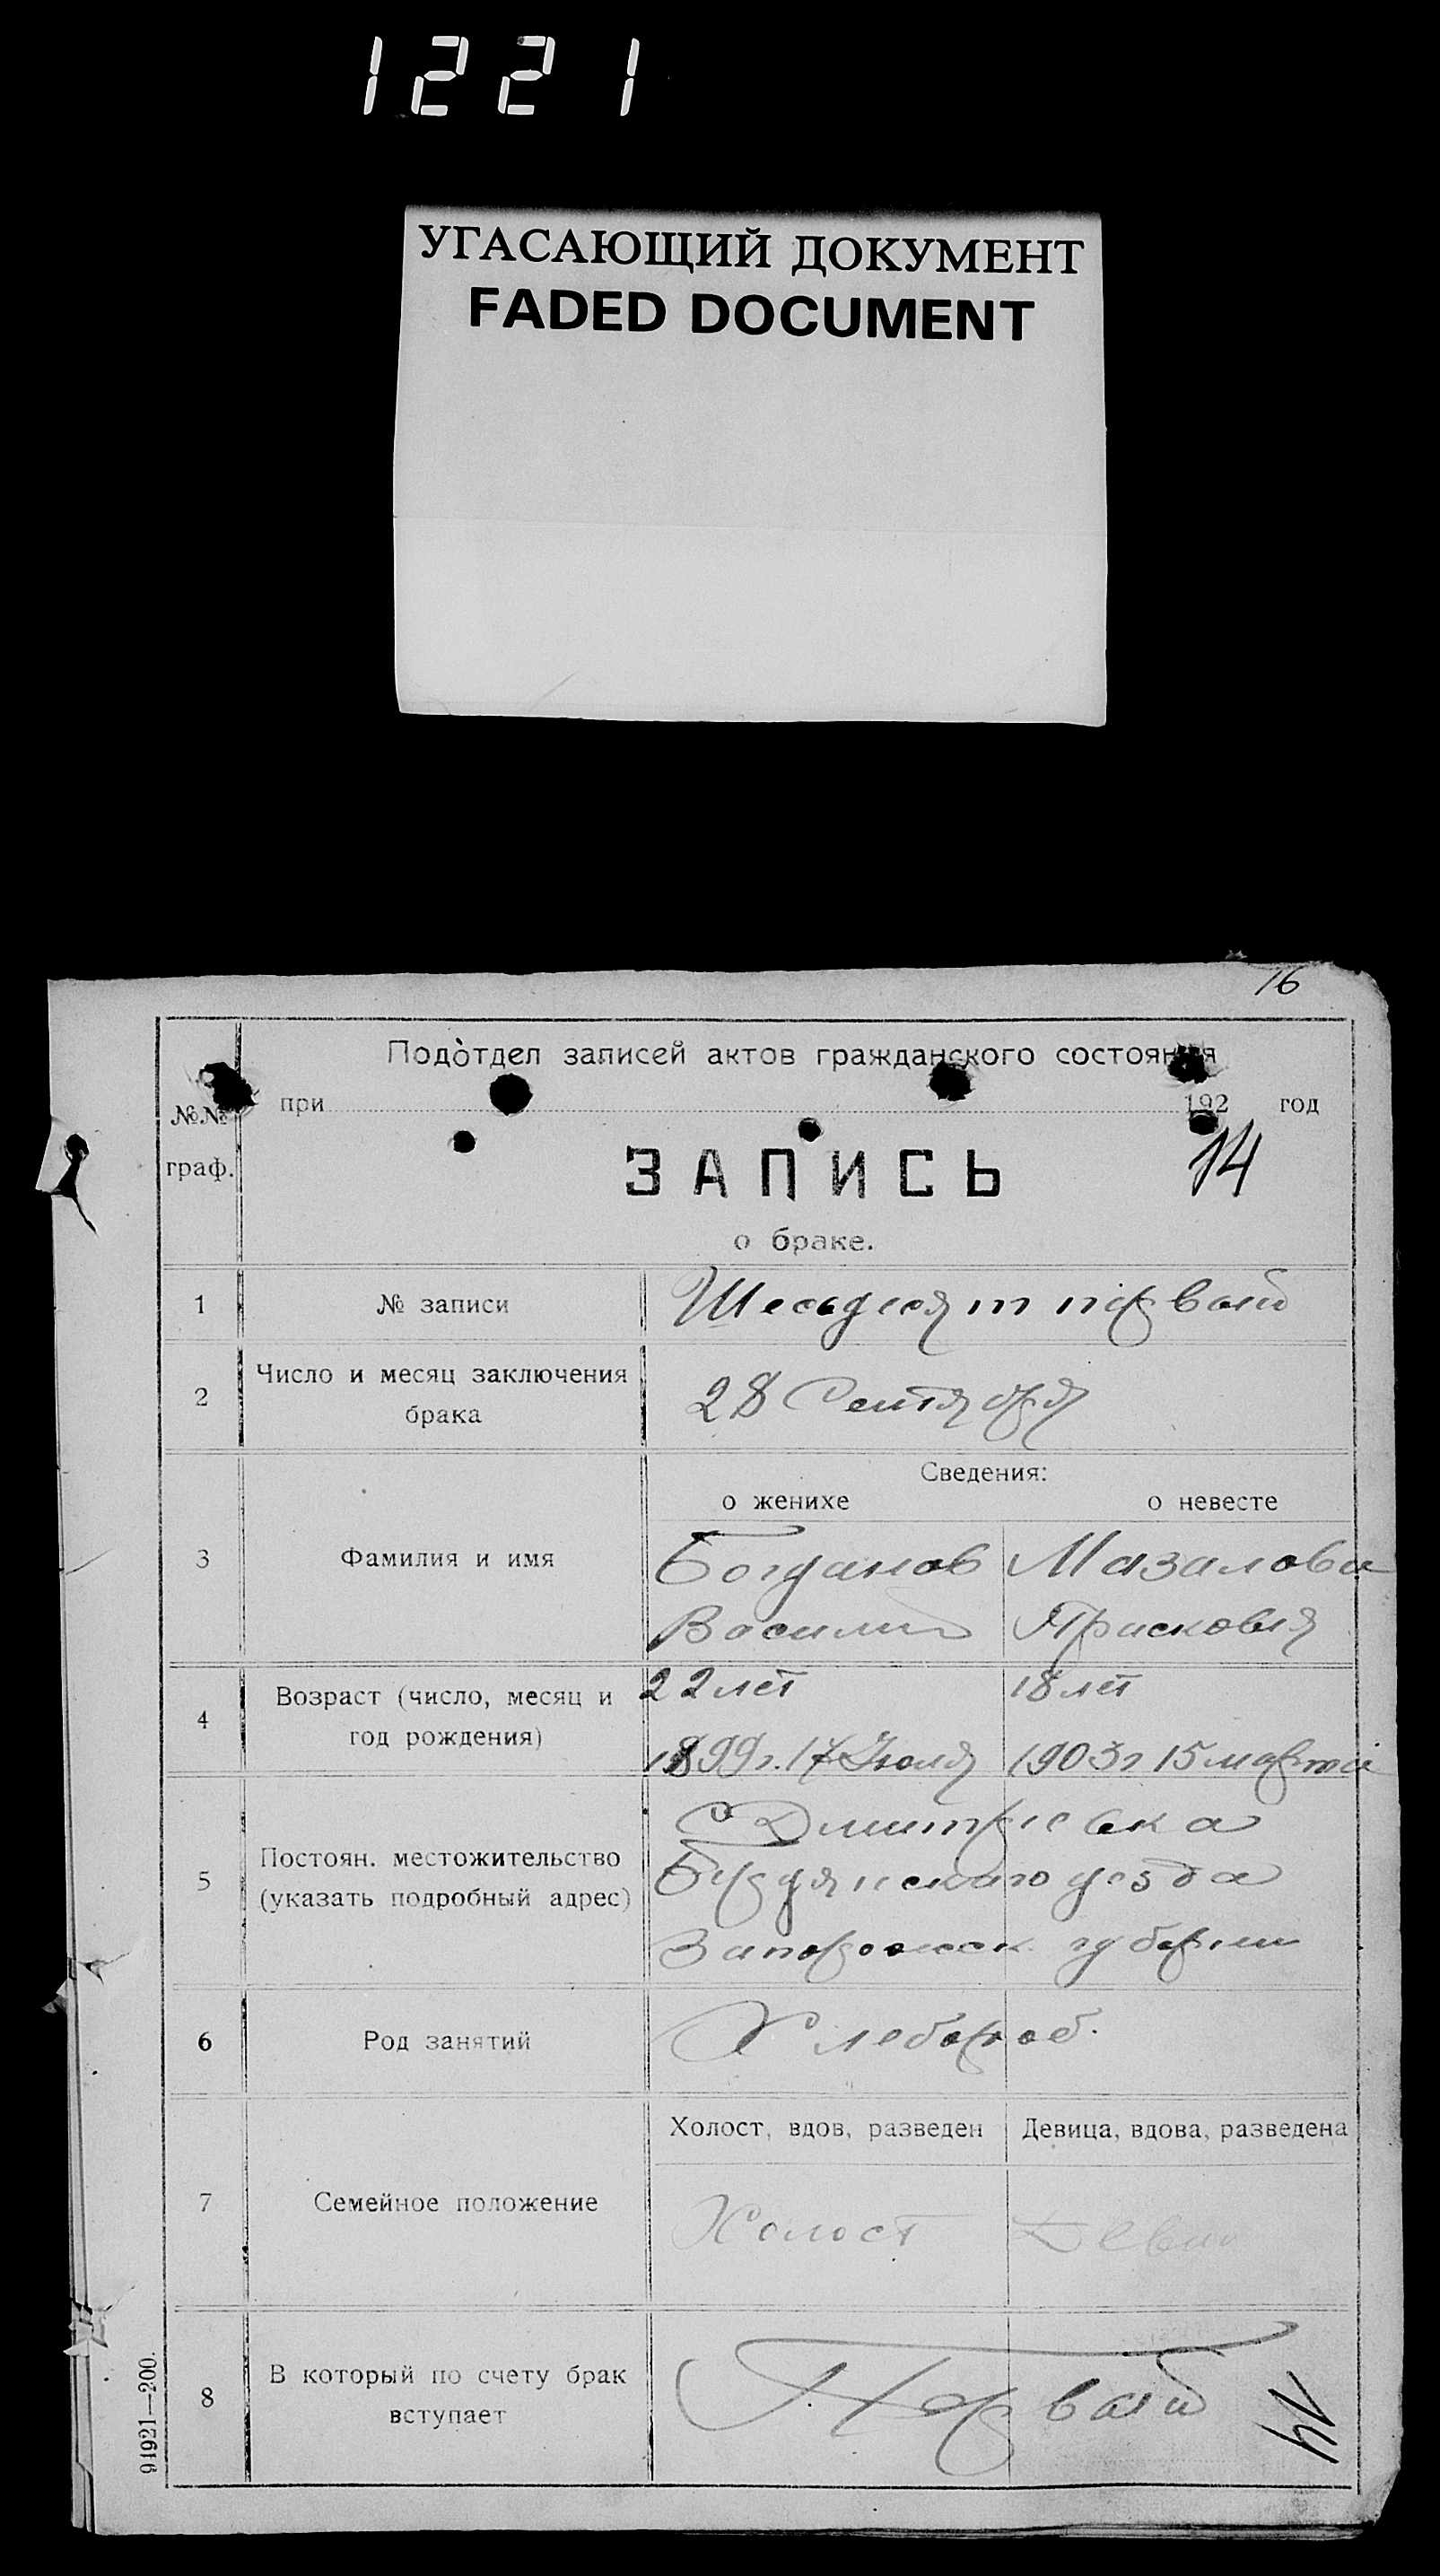 1221
УГАСАЮЩИЙ ДОКУМЕНТ
FADED DOCUMENT
16
Подотдел записей актов гражданского состояния
№№
граф.
при 192 год
ЗАПИСЬ
14
о браке.
1 № записи
Шесьдесят первый
2 Число и месяц заключения
брака
28 Сентября
Сведения:
о женихе о невесте
3 Фамилия и имя
Богданов Мазалова
Василий Прасковия
4 Возраст (число, месяц и
год рождения)
22 лет 18 лет
1899 г. 17 Июля 1903 г 15 марта
5 Постоян. местожительство
(указать подробный адрес)
С Дмитриевка
Бердянского уезда
Запорожск губернии
6 Род занятий
Хлебороб.
7 Семейное положение
Холост, вдов, разведен Девица, вдова, разведена
Холост
8 В который по счету брак
вступает
Первый
14
91921—200.